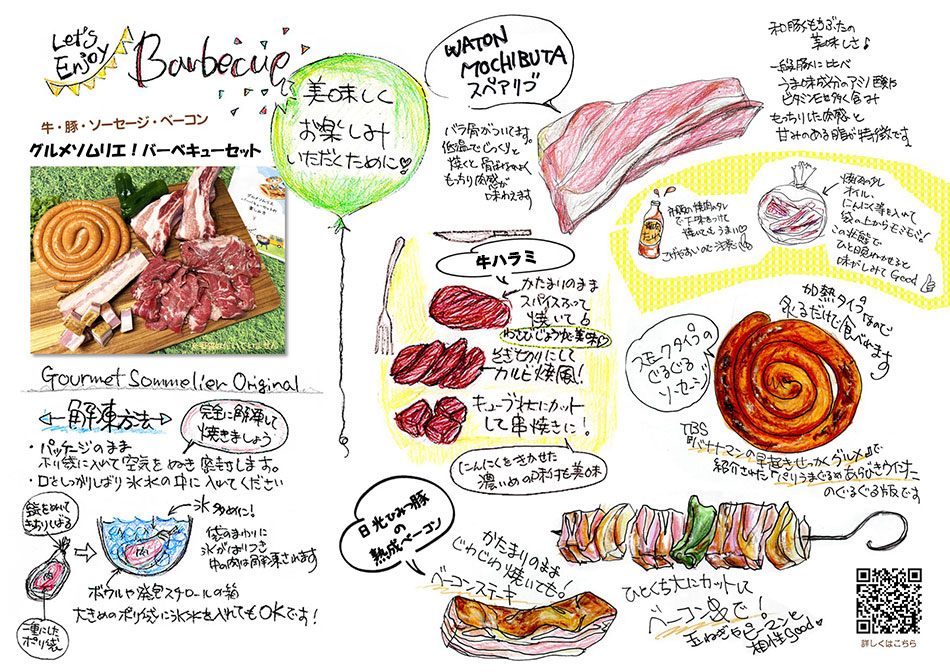 Let's
Enjoy
Barbecue
牛・豚・ソーセージ・ベーコン
グルメソムリエ!バーベキューセット
Gourmet Sommelier Original
解凍方法
完全に解凍して
焼きましょう
・パッケージのまま
ポリ袋に入れて空気をぬき密封します。
・口をしっかりしばり氷水の中に入れてください
袋をねじって
きっちりしばる
二重にした
ポリ袋
肉
肉
氷
多めに!
袋のまわりに
氷がはりつき
中の肉は解凍されます
ボウルや発泡スチロールの箱
大きめのポリ袋に氷水を入れてもOKです!
美味しく
お楽しみ
いただくために♡
WATON
MOCHIBUTA
スペアリブ
バラ肩がついてます。
低温でじっくりと
焼くと
もっちり肉感が
味わえます
和豚もちぶたの
美味しさ♪
一般豚に比べ
うま味成分のアミノ酸や
ビタミンEは多く含み
もっちりした肉感と
甘みのある脂が特徴です
焼肉
たれ
市販の焼肉のタレ
で下味をつけて
焼いてもうまい♡
こげやすいので注意
焼肉のタレ
オイル、
にんにく等を入れて
袋の上からモミモミ!
この状態で
ひと晩ねかせると
味がしみてGood
牛ハラミ
かたまりのまま
スパイスふって
焼いても
わさびじょうゆも美味♡
そぎ切りにして
カルビ焼風!
キューブ状にカット
して串焼きに!
にんにくをきかせた
濃いめの味付も美味
スモークタイプの
ぐるぐる
ソーセージ
加熱タイプなので
炙るだけで食
べれます
TBS
『バナナマンの早起きせっかくグルメ』で
紹介された『パリうまぐるめあらびきウインナー』
のぐるぐる版です
日光ひみつ豚
の
熟成ベーコン
かたまりのまま
じわじわ焼いても!
ベーコンステーキ
ひとくち大にカットして
ベーコン串で!
玉ねぎやピーマンと
相性Good♡
詳しくはこちら